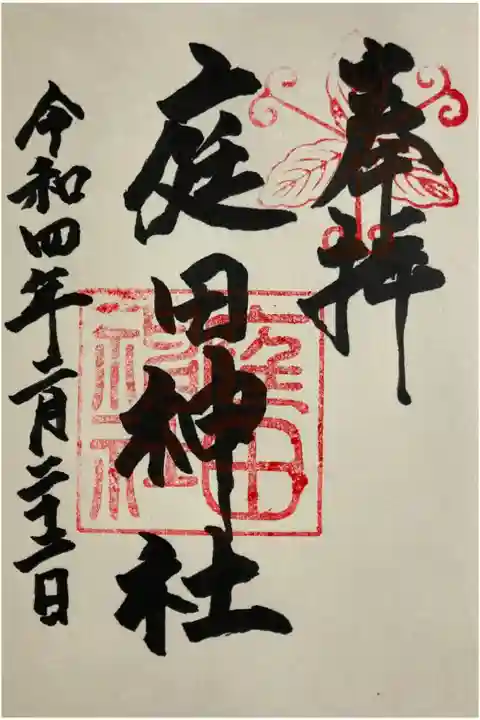 奉拝
庭田神社
庭田神社
令和四年二月二十二日